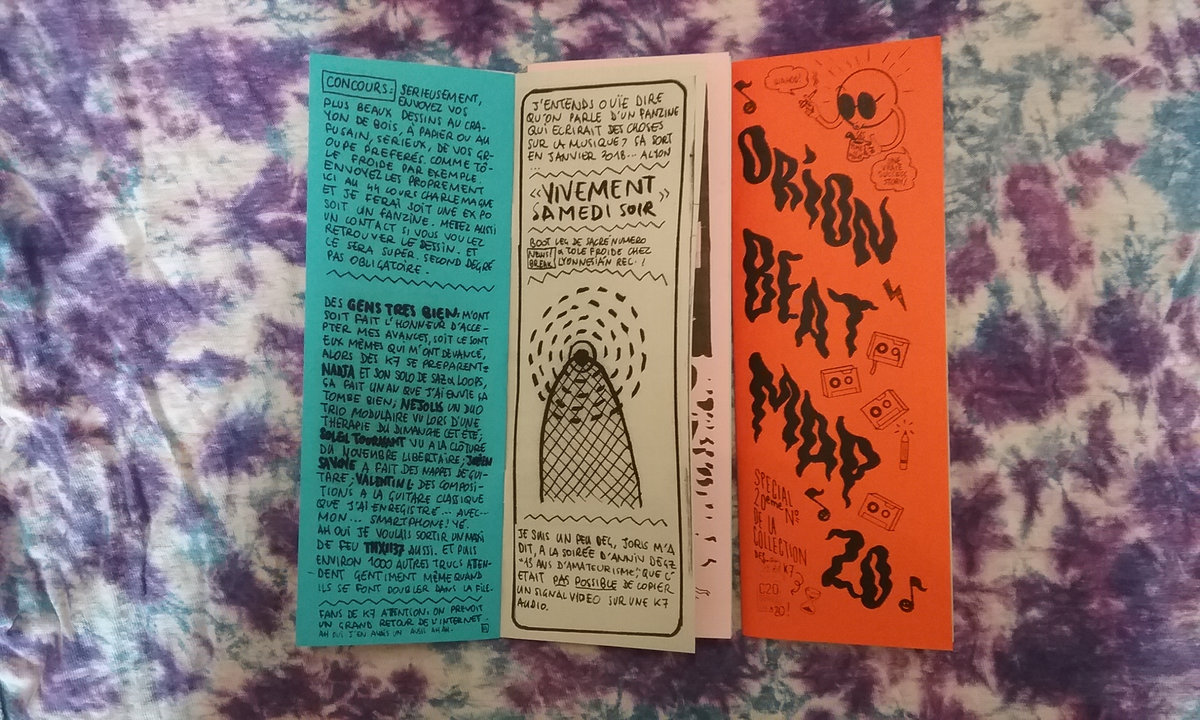 CONCOURS: SERIEUSEMENT,
ENVOYEZ VOS
PLUS BEAUX DESSINS AU CRA-
YON DE BOIS, A PAPIER OU AU
FUSAIN, SERIEUX, DE VOS GR-
OUPE PREFERÉS. COMME TÔ-
LE FROIDE PAR EXEMPLE.
ENVOYEZ LES PROPREMENT
ICI AU 44 COURS CHARLEMAGNE
ET JE FERAI SOIT UNE EXPO
SOIT UN FANZINE. METEZ AUSSI
UN CONTACT SI VOUS VOULEZ
RETROUVER LE DESSIN. ET
CE SERA SUPER. SECOND DEGRÉ
PAS OBLIGATOIRE.
DES GENS TRES BIEN M'ONT
SOIT FAIT L'HONNEUR D'ACCE-
PTER MES AVANCES, SOIT CE SONT
EUX MÊMES QUI M'ONT DEVANCÉ,
ALORS DES K7 SE PREPARENT:
NADJA ET SON SOLO DE SAZ & LOOPS,
ÇA FAIT UN AN QUE J'AI ENVIE ÇA
TOMBE BIEN; NEJOLIS UN DUO
TRIO MODULAIRE VU LORS D'UNE
THERAPIE DU DIMANCHE CET ÉTÉ;
SOLEIL TOURNANT VU A LA CLÔTURE
DU NOVEMBRE LIBERTAIRE;
SAVOIE A FAIT DES NAPPES DE GUI-
TARE; VALENTIN L DES COMPOSI-
TIONS A LA GUITARE CLASSIQUE
QUE J'AI ENREGISTRÉ... AVEC...
MON... SMARTPHONE! YÉ.
AH OUI JE VOULAIS SORTIR UN MAXI
DE FEU THX1137 AUSSI. ET PUIS
ENVIRON 1000 AUTRES TRUCS ATTEN-
DENT GENTIMENT MÊME QUAND
ILS SE FONT DOUBLER DANS LA FILE.
FANS DE K7 ATTENTION: ON PREVOIT
UN GRAND RETOUR DE L'INTERNET.
AH OUI J'EN AVAIS UN AUSSI AH AH.
J'ENTENDS OUÏE DIRE
QU'ON PARLE D'UN FANZINE
QUI ECRIRAIT DES CHOSES
SUR LA MUSIQUE? ÇA SORT
EN JANVIER 2018... ALYON
...
«VIVEMENT
SAMEDI SOIR»
BOOT LEG DE SACRÉ NUMERO
NEWS! & TOLE FROIDE CHEZ
BREAK LYONNESIAN REC.!
JE SUIS UN PEU DEG, JORIS M'A
DIT, A LA SOIRÉE D'ANNIV DE GZ
"15 ANS D'AMATEURISME", QUE C'
ETAIT PAS POSSIBLE DE COPIER
UN SIGNAL VIDEO SUR UNE K7
AUDIO.
WAHOO!
SUCCESS
STORY!
ORION
BEAT
MAP
20
SPECIAL
20ème N°
DE LA
COLLECTION
DES K7
C20